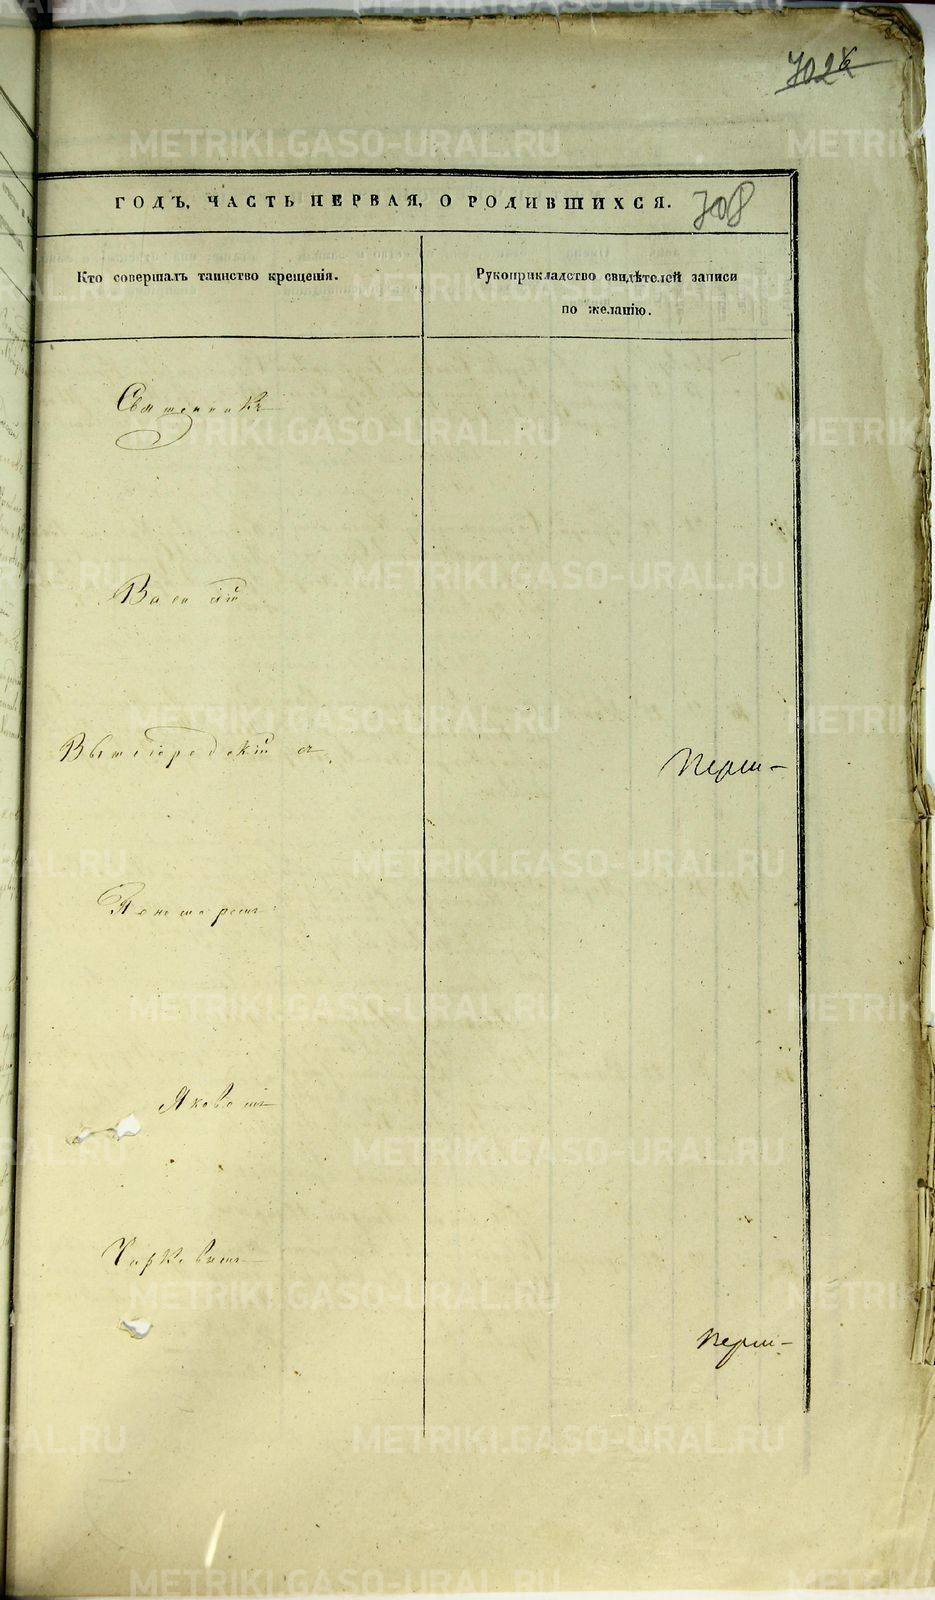 7026
ГОДЪ, ЧАСТЬ ПЕРВАЯ, О РОДИВШИХСЯ.
708
Кто совершалъ таинство крещенія.
Рукоприкладство свидѣтелей записи
по желанію.
Священникъ
Василій
съ
Перш-
Яковомъ
Перш-
METRIKI.GASO-URAL.RU